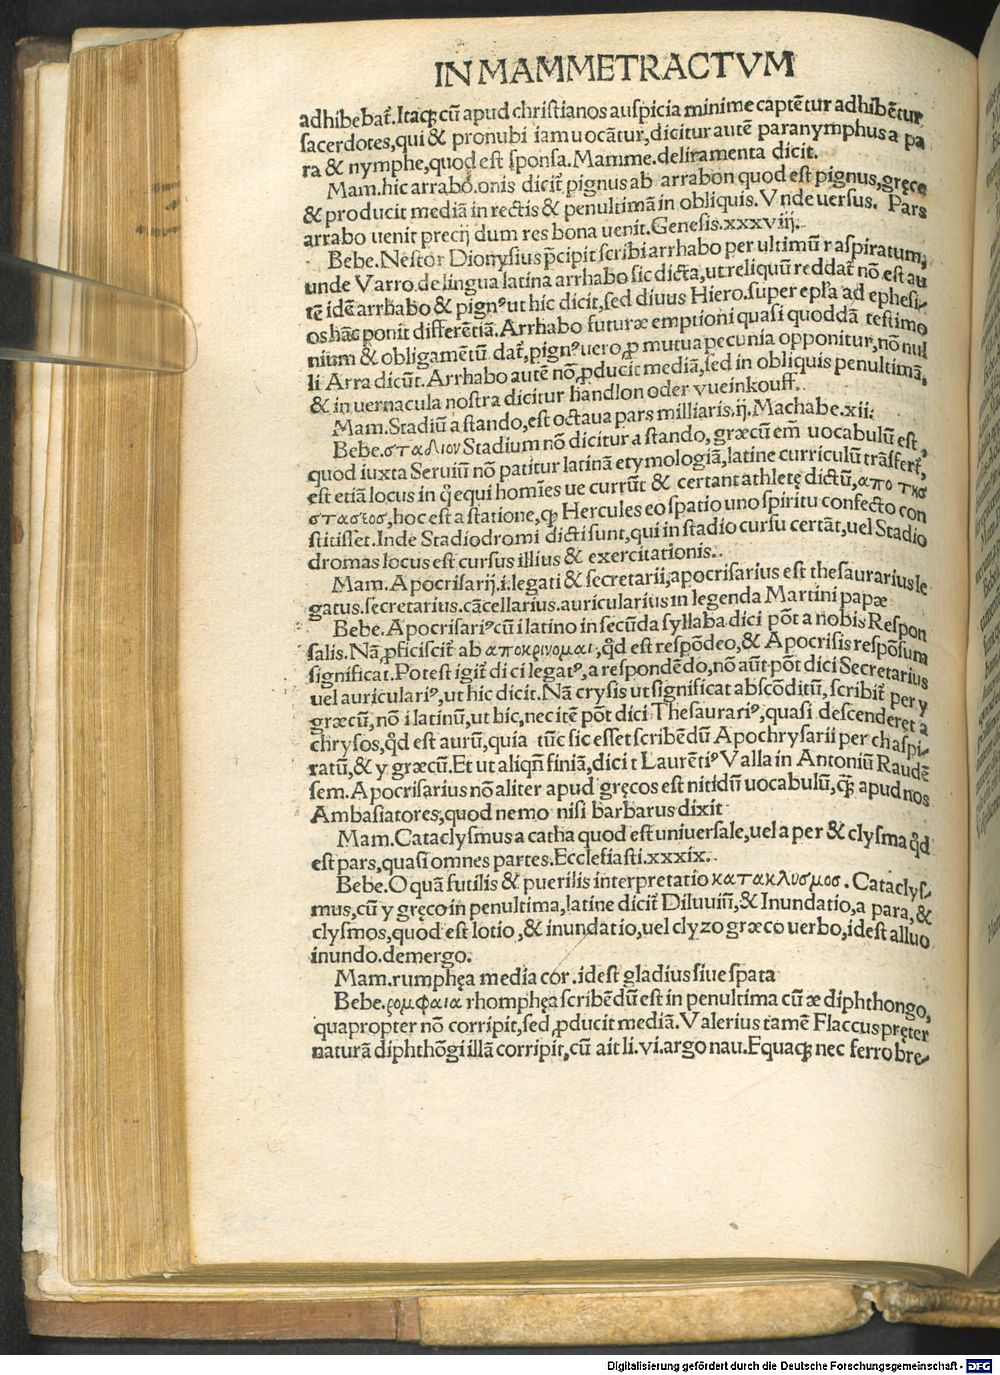 IN MAMMETRACTVM
adhibebat᷑. Itaq̨ cū apud christianos auspicia minime captētur adhibētur
sacerdotes, qui & pronubi iam uocātur, dicitur autē paranymphus a pa
ra & nymphe, quod est sponsa. Mamme. deliramenta dicit.
Mam. hic arrabo. onis dicit᷑ pignus ab arrabon quod est pignus, gręce
& producit mediā in rectis & penultimā in obliquis. Vnde uersus. Pars
arrabo uenit precij dum res bona uenit. Genesis. xxxviij.
Bebe. Nestor Dionysius p̄cipit scribi arrhabo per ultimū r aspiratum,
unde Varro. de lingua latina arrhabo sic dicta, ut reliquū reddat᷑ nō est au
tē idē arrhabo & pignꝰ ut hic dicit, sed diuus Hiero. super epl̄a ad ephesi-
os hāc ponit differētiā. Arrhabo futuræ emptioni quasi quoddā testimo
nium & obligamētū dat᷑, pignꝰ uero, ꝓ mutua pecunia opponitur, nō nul
li Arra dicūt. Arrhabo autē nō, ꝓducit mediā, sed in obliquis penultimā,
& in uernacula nostra dicitur handlon oder vueinkouff.
Mam. Stadiū a stando, est octaua pars milliaris. ij. Machabe. xii.
Bebe. σταδιον Stadium nō dicitur a stando, græcū em̄ uocabulū est,
quod iuxta Seruiū nō patitur latinā etymologiā, latine curriculū trāsfert᷑,
est etiā locus in q̊ equi homīes ue currūt & certant athletę dictū, απο τησ
στασεοσ, hoc est a statione, qp̨ Hercules eo spatio uno spiritu confecto con
stitisset. Inde Stadiodromi dicti sunt, qui in stadio cursu certāt, uel Stadio
dromas locus est cursus illius & exercitationis.
Mam. Apocrisarij. i. legati & secretarii, apocrisarius est thesaurarius le
gatus. secretarius. cācellarius. auricularius in legenda Martini papæ
Bebe. Apocrisariꝰ cū i latino in secūda syllaba dici pōt a nobis Respon
salis. Nā, ꝓficiscit᷑ ab αποκρινομαι, qd̊ est respōdeo, & Apocrisis respōsum
significat. Potest igit᷑ di ci legatꝰ, a respondēdo, nō aūt pōt dici Secretarius
uel auriculariꝰ, ut hic dicit. Nā crysis ut significat abscōditū, scribit᷑ per y
græcū, nō i latinū, ut hic, nec itē pōt dici Thesaurariꝰ, quasi descenderet a
chrysos, qd̊ est aurū, quia tūc sic esset scribēdū Apochrysarii per ch aspi-
ratū, & y græcū. Et ut aliqn̄ finiā, dici t Laurētiꝰ Valla in Antoniū Raudē
sem. Apocrisarius nō aliter apud gręcos est nitidū uocabulū, q̨̄ apud nos
Ambasiatores, quod nemo nisi barbarus dixit
Mam. Cataclysmus a catha quod est uniuersale, uel a per & clysma qd̊
est pars, quasi omnes partes. Ecclesiasti. xxxix.
Bebe. O quā futilis & puerilis interpretatio κατακλυσμοσ. Cataclys-
mus, cū y gręco in penultima, latine dicit᷑ Diluuiū, & Inundatio, a para, &
clysmos, quod est lotio, & inundatio, uel clyzo græco uerbo, id est alluo
inundo. demergo.
Mam. rumphęa media cor. id est gladius siue spata
Bebe. ρομφαια rhomphęa scribēdū est in penultima cū æ diphthongo,
quapropter nō corripit, sed ꝓducit mediā. Valerius tamē Flaccus pręter
naturā diphthōgi illā corripit, cū ait li. vi. argo nau. Equaq̨ nec ferro bre-
Digitalisierung gefördert durch die Deutsche Forschungsgemeinschaft - DFG